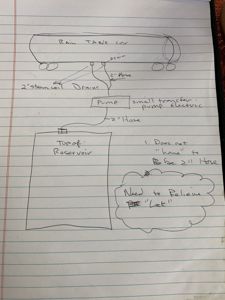 Rail TANK car
2" Hose
2" steam coil Drains
Pump
small transfer
pump electric
2" Hose
Top of
Reservoir
1. Does not
"have" to
Be 2" Hose
Need to Relieve